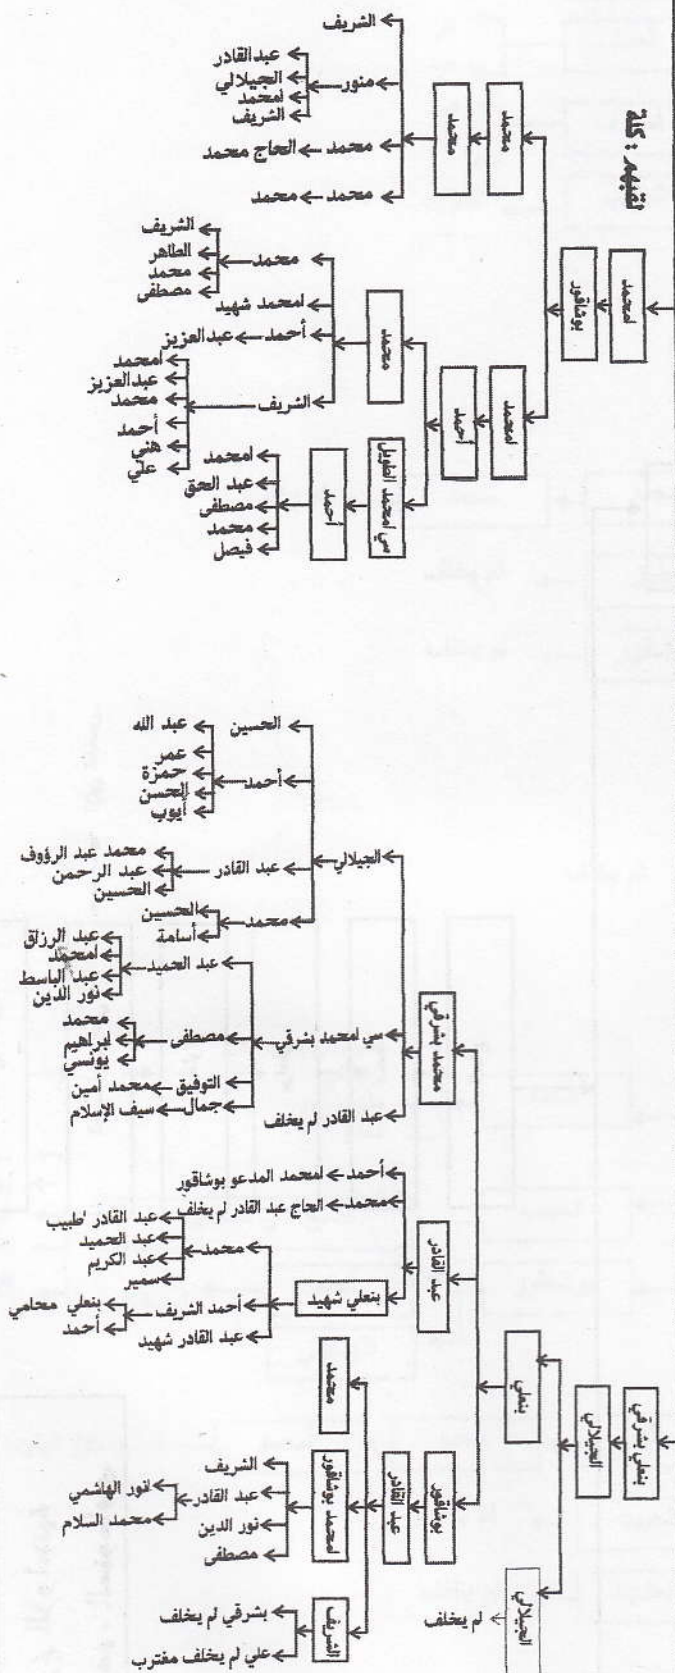 لقبهم : كلة
امحمد
بوشاقور
محمد
محمد
الشريف
منور
عبدالقادر
الجيلالي
امحمد
الشريف
محمد
الحاج محمد
محمد
محمد
امحمد
أحمد
محمد
محمد
الشريف
الطاهر
محمد
مصطفى
امحمد شهيد
أحمد
عبدالعزيز
الشريف
امحمد
عبدالعزيز
محمد
أحمد
هني
علي
سي امحمد الطويل
أحمد
امحمد
عبد الحق
مصطفى
محمد
فيصل
بنعلي بشرقي
الجيلالي
بنعلي
محمد بشرقي
الجيلالي
الحسين
أحمد
عبد الله
عمر
حمزة
الحسن
أيوب
عبد القادر
محمد عبد الرؤوف
عبد الرحمن
الحسين
محمد
الحسين
أسامة
سي امحمد بشرقي
عبد الحميد
عبد الرزاق
امحمد
عبد الباسط
نور الدين
مصطفى
محمد
ابراهيم
يونسي
التوفيق
محمد أمين
جمال
سيف الإسلام
عبد القادر لم يخلف
عبد القادر
أحمد
امحمد المدعو بوشاقور
محمد
الحاج عبد القادر لم يخلف
بنعلي شهيد
محمد
عبد القادر طبيب
عبد الحميد
عبد الكريم
سمير
أحمد الشريف
بنعلي محامي
أحمد
عبد القادر شهيد
بوشاقور
عبد القادر
محمد
امحمد بوشاقور
الشريف
عبد القادر
نور الهاشمي
محمد السلام
نور الدين
مصطفى
الشريف
بشرقي لم يخلف
علي لم يخلف مغترب
الجيلالي
لم يخلف